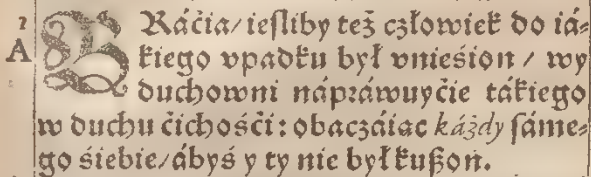 BRáćia/ ieſliby też człowiek do iá⸗
kiego vpadku był vnieśion / wy
duchowni nápráwuyćie tákiego
w duchu ćichośći: obaczáiac káżdy ſáme⸗
go śiebie/ ábyś y ty nie był kußon.
A